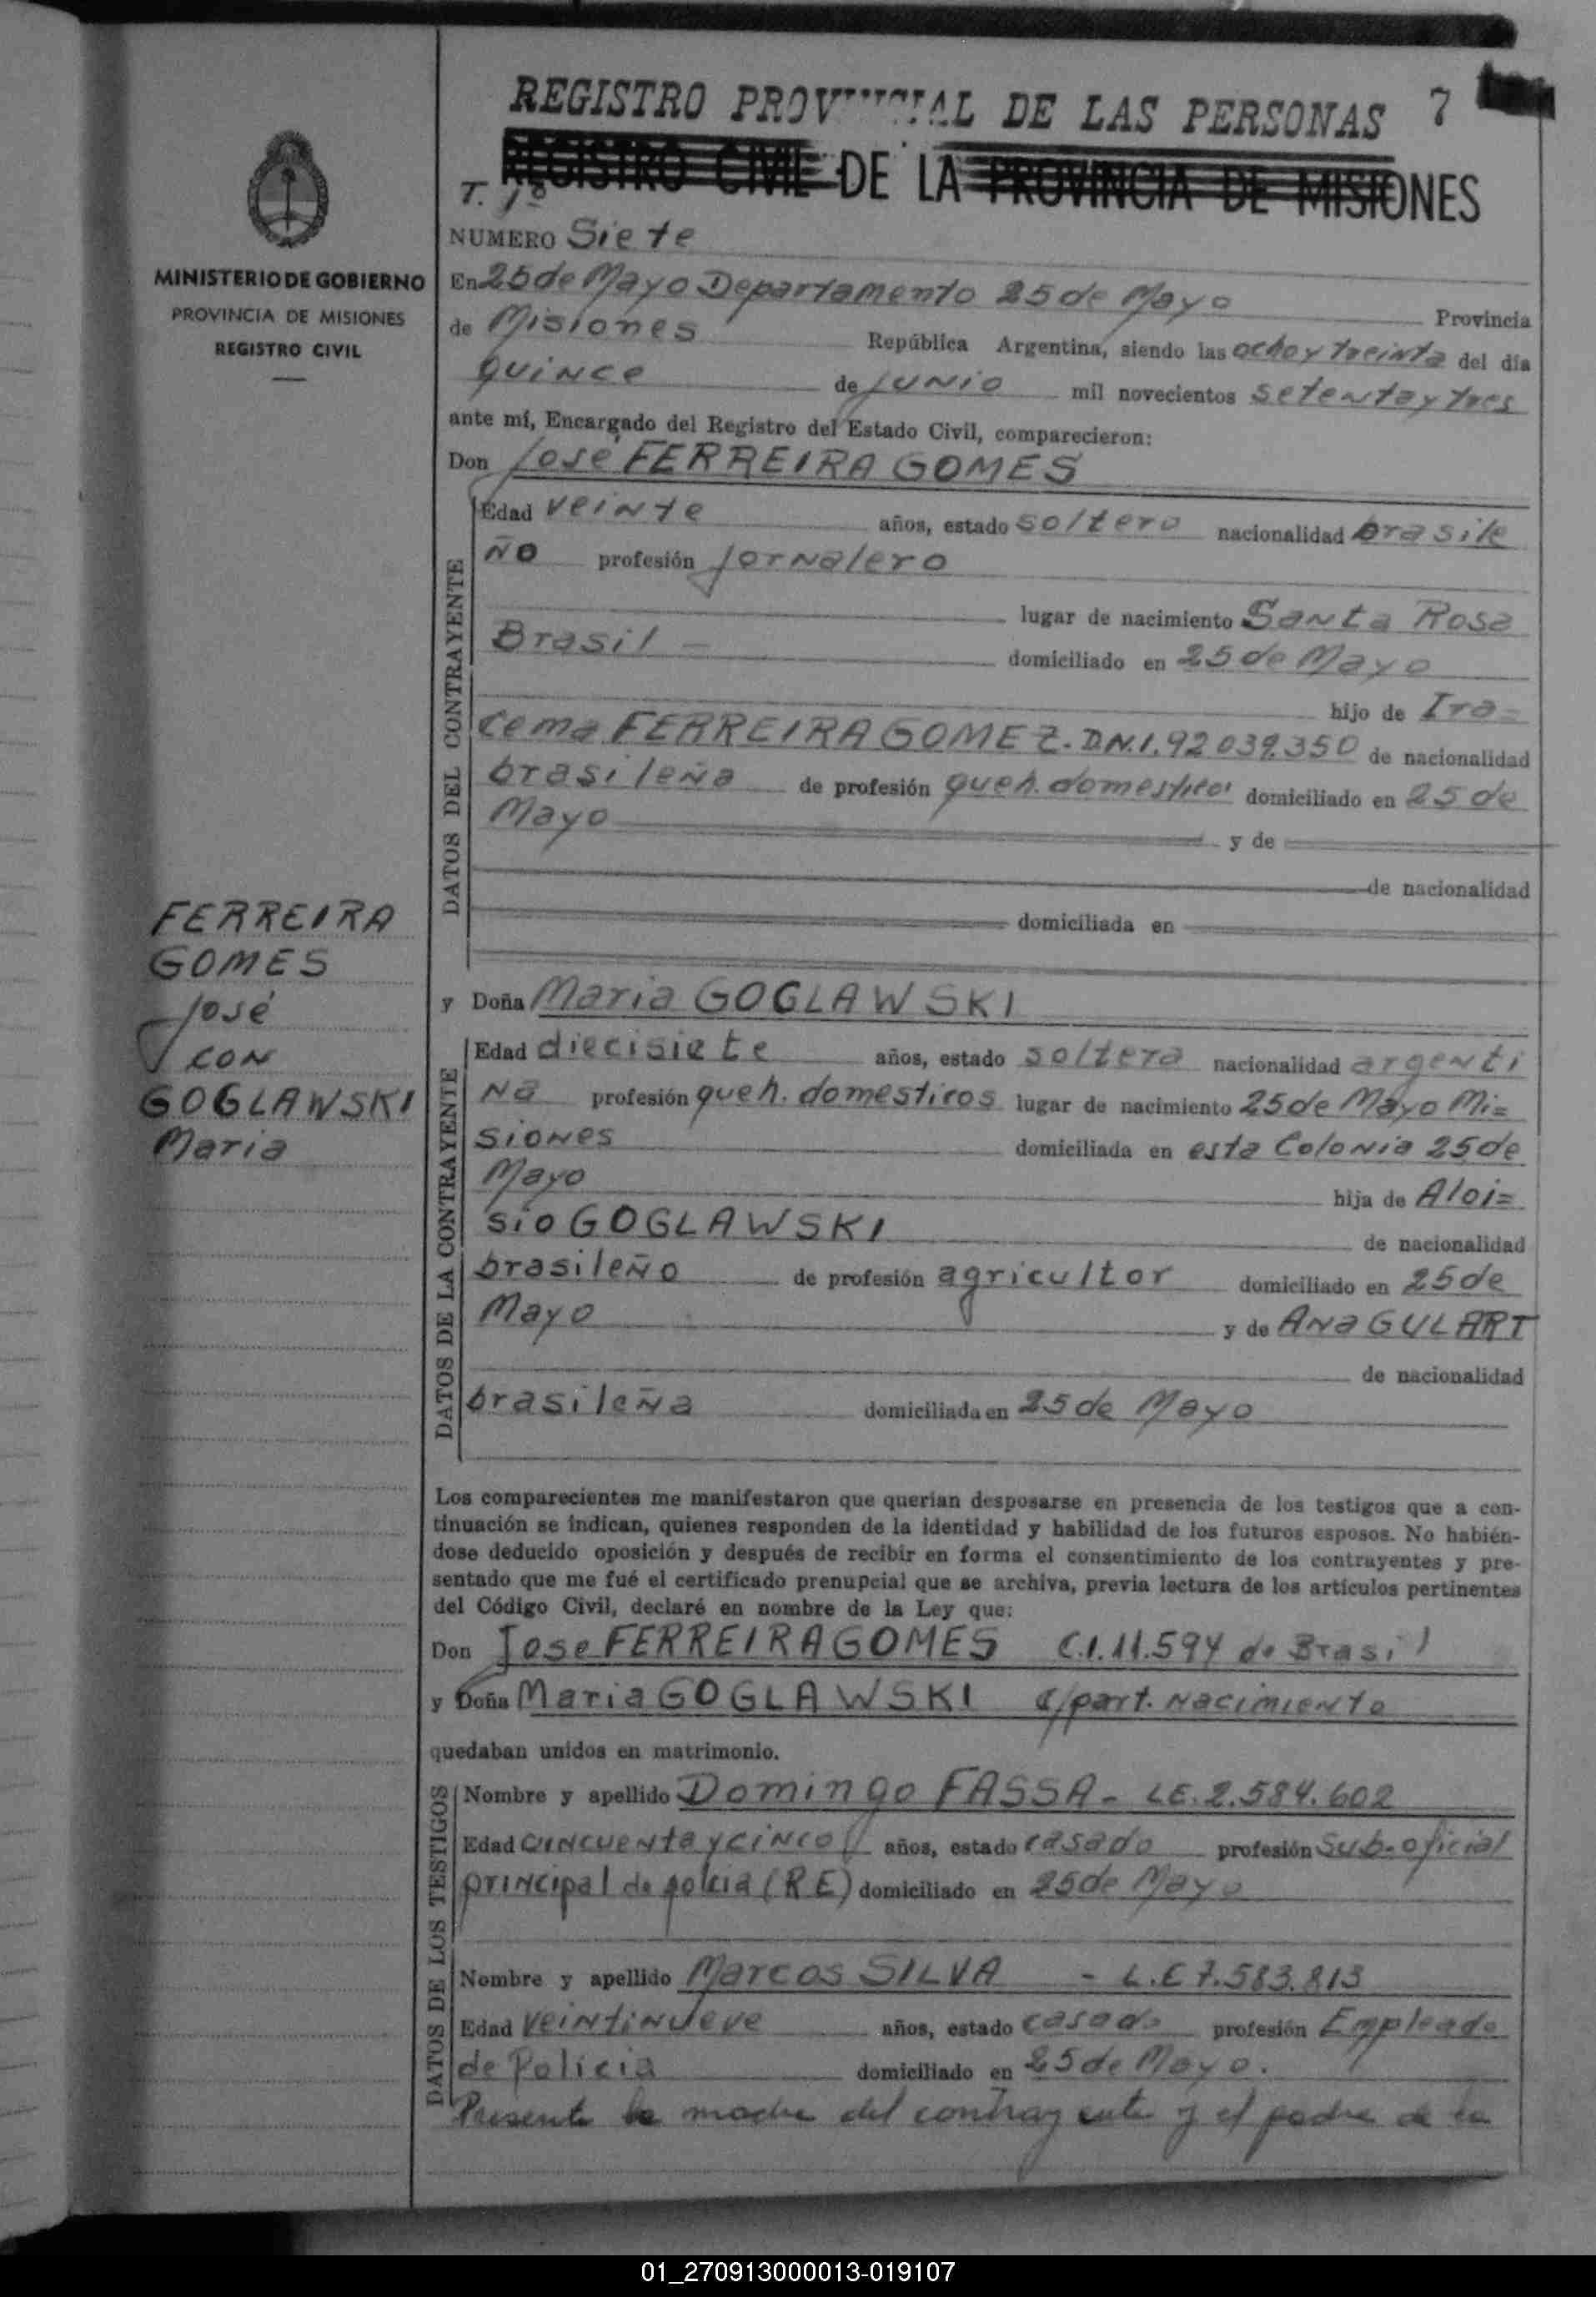 REGISTRO PROVINCIAL DE LAS PERSONAS 7
REGISTRO CIVIL DE LA PROVINCIA DE MISIONES
T. 1º
MINISTERIO DE GOBIERNO
PROVINCIA DE MISIONES
REGISTRO CIVIL
NUMERO Siete
En 25 de Mayo Departamento 25 de Mayo Provincia
de Misiones República Argentina, siendo las ocho y treinta del día
quince de junio mil novecientos setenta y tres
ante mí, Encargado del Registro del Estado Civil, comparecieron:
Don José FERREIRA GOMES
DATOS DEL CONTRAYENTE
Edad veinte años, estado soltero nacionalidad brasile
ño profesión jornalero
lugar de nacimiento Santa Rosa
Brasil - domiciliado en 25 de Mayo
hijo de Ira=
cema FERREIRA GOMEZ. D.N.I. 92 039.350 de nacionalidad
brasileña de profesión queh. domesticos domiciliado en 25 de
Mayo y de
de nacionalidad
domiciliada en
FERREIRA
GOMES
José
CON
GOGLAWSKI
Maria
y Doña Maria GOGLAWSKI
DATOS DE LA CONTRAYENTE
Edad diecisiete años, estado soltera nacionalidad argenti
na profesión queh. domesticos lugar de nacimiento 25 de Mayo Mi=
siones domiciliada en esta Colonia 25 de
Mayo hija de Aloi=
sio GOGLAWSKI de nacionalidad
brasileño de profesión agricultor domiciliado en 25 de
Mayo y de Ana GULART
de nacionalidad
brasileña domiciliada en 25 de Mayo
Los comparecientes me manifestaron que querían desposarse en presencia de los testigos que a con-
tinuación se indican, quienes responden de la identidad y habilidad de los futuros esposos. No habién-
dose deducido oposición y después de recibir en forma el consentimiento de los contrayentes y pre-
sentado que me fué el certificado prenupcial que se archiva, previa lectura de los artículos pertinentes
del Código Civil, declaré en nombre de la Ley que:
Don Jose FERREIRA GOMES C.I. 11.594 de Brasil
y Doña Maria GOGLAWSKI c/part. Nacimiento
quedaban unidos en matrimonio.
DATOS DE LOS TESTIGOS
Nombre y apellido Domingo FASSA - LE. 2.584.602
Edad cincuenta y cinco años, estado casado profesión Sub-oficial
principal de policia (RE) domiciliado en 25 de Mayo
Nombre y apellido Marcos SILVA - L.E 7.583.813
Edad veintinueve años, estado casado profesión Empleado
de Policia domiciliado en 25 de Mayo.
Presente la madre del contrayente y el padre de la
01_270913000013-019107